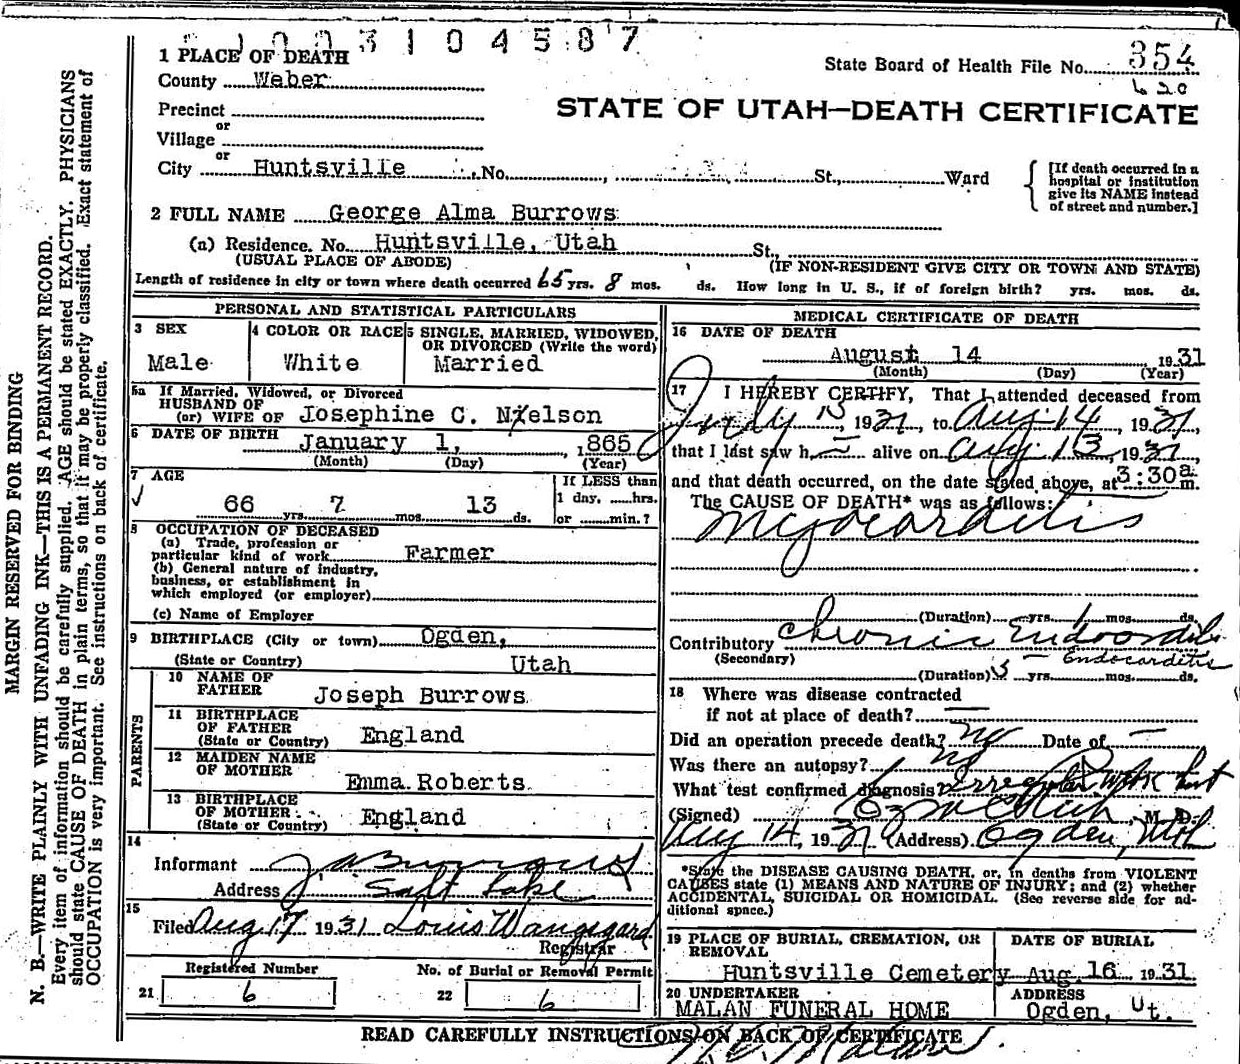 1003104587
1 PLACE OF DEATH
State Board of Health File No. 354
County Weber
620
STATE OF UTAH—DEATH CERTIFICATE
Precinct
or
Village
or
City Huntsville, No. , St., Ward
[If death occurred in a hospital or institution give its NAME instead of street and number.]
2 FULL NAME George Alma Burrows
(a) Residence. No. Huntsville, Utah St.,
(USUAL PLACE OF ABODE) (IF NON-RESIDENT GIVE CITY OR TOWN AND STATE)
Length of residence in city or town where death occurred 65 yrs. 8 mos. ds. How long in U. S., if of foreign birth? yrs. mos. ds.
PERSONAL AND STATISTICAL PARTICULARS
3 SEX
Male
4 COLOR OR RACE
White
5 SINGLE, MARRIED, WIDOWED, OR DIVORCED (Write the word)
Married
5a If Married, Widowed, or Divorced
HUSBAND OF
(or) WIFE OF Josephine C. Nielson
6 DATE OF BIRTH January 1, , 1865
(Month) (Day) (Year)
7 AGE
66 yrs. 7 mos. 13 ds.
If LESS than
1 day, ......hrs.
or ........min.?
8 OCCUPATION OF DECEASED
(a) Trade, profession or
particular kind of work Farmer
(b) General nature of industry,
business, or establishment in
which employed (or employer)
(c) Name of Employer
9 BIRTHPLACE (City or town) Ogden,
(State or Country) Utah
PARENTS
10 NAME OF
FATHER Joseph Burrows
11 BIRTHPLACE
OF FATHER
(State or Country) England
12 MAIDEN NAME
OF MOTHER
Emma Roberts
13 BIRTHPLACE
OF MOTHER
(State or Country) England
14
Informant J A Burrows
Address Salt Lake
15
Filed Aug 17 1931 Louis Wangsgard
Registrar
Registered Number
21 6
No. of Burial or Removal Permit
22 6
MEDICAL CERTIFICATE OF DEATH
16 DATE OF DEATH
August 14 1931
(Month) (Day) (Year)
17 I HEREBY CERTIFY, That I attended deceased from
July 15, 1931, to Aug-14, 1931,
that I last saw h — alive on Aug. 13, 1931,
and that death occurred, on the date stated above, at 3:30 a m.
The CAUSE OF DEATH* was as follows:
Myocarditis
(Duration) yrs. 1 mos. ds.
Contributory Chronic Endocarditis
(Secondary) Endocarditis
(Duration) yrs. mos. ds.
18 Where was disease contracted
if not at place of death? —
Did an operation precede death? No Date of —
Was there an autopsy? No
What test confirmed diagnosis? Irregular
(Signed) , M. D.
Aug 14, 1931 (Address) Ogden, Utah
*State the DISEASE CAUSING DEATH, or, in deaths from VIOLENT
CAUSES state (1) MEANS AND NATURE OF INJURY; and (2) whether
ACCIDENTAL, SUICIDAL OR HOMICIDAL. (See reverse side for ad-
ditional space.)
19 PLACE OF BURIAL, CREMATION, OR
REMOVAL
Huntsville Cemetery
DATE OF BURIAL
Aug. 16 1931
20 UNDERTAKER
MALAN FUNERAL HOME
ADDRESS
Ogden, Ut.
READ CAREFULLY INSTRUCTIONS ON BACK OF CERTIFICATE
MARGIN RESERVED FOR BINDING
N. B.—WRITE PLAINLY WITH UNFADING INK—THIS IS A PERMANENT RECORD.
Every item of information should be carefully supplied. AGE should be stated EXACTLY. PHYSICIANS
should state CAUSE OF DEATH in plain terms, so that it may be properly classified. Exact statement of
OCCUPATION is very important. See instructions on back of certificate.